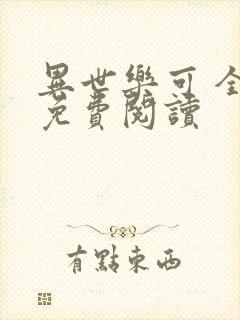 異世樂可 全
免費閱讀
有點東西